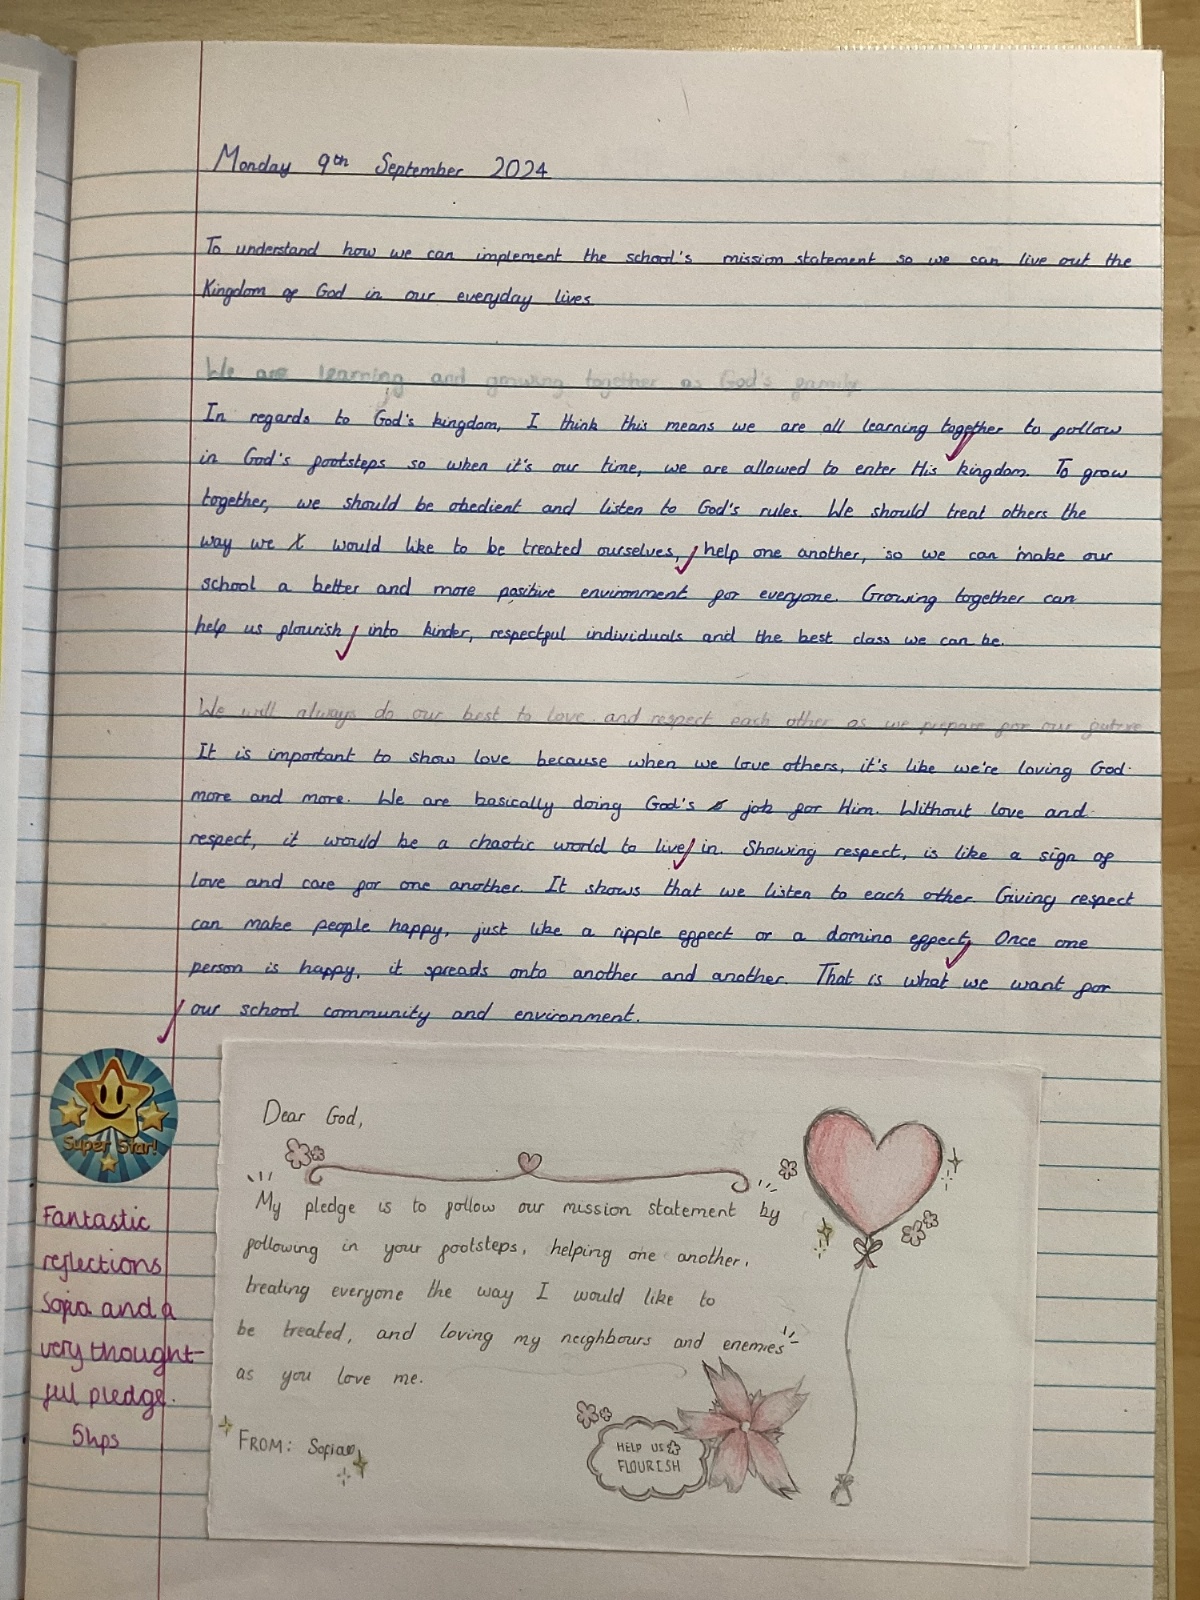 Monday 9th September 2024
To understand how we can implement the school's mission statement so we can live out the
Kingdom of God in our everyday lives
We are learning and growing together as God's family
In regards to God's kingdom, I think this means we are all learning together to follow
in God's footsteps so when it's our time, we are allowed to enter His kingdom. To grow
together, we should be obedient and listen to God's rules. We should treat others the
way we would like to be treated ourselves, help one another, so we can make our
school a better and more positive environment for everyone. Growing together can
help us flourish into kinder, respectful individuals and the best class we can be.
We will always do our best to love and respect each other as we prepare for our future
It is important to show love because when we love others, it's like we're loving God
more and more. We are basically doing God's job for Him. Without love and
respect, it would be a chaotic world to live in. Showing respect, is like a sign of
love and care for one another. It shows that we listen to each other Giving respect
can make people happy, just like a ripple effect or a domino effect. Once one
person is happy, it spreads onto another and another. That is what we want for
our school community and environment.
Super Star!
Fantastic
reflections
Sofia and a
very thought-
ful pledge.
5hps
Dear God,
My pledge is to follow our mission statement by
following in your footsteps, helping one another,
treating everyone the way I would like to
be treated, and loving my neighbours and enemies
as you love me.
FROM: Sofia
HELP US
FLOURISH